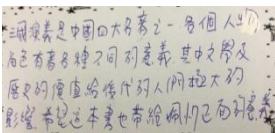 三國演義是中國四大名著之一 每個人物
角色有著各種不同的意義 其中文學及
歷史的價值給後代的人們極大的
影響 希望這本書也帶給你們正面的意義